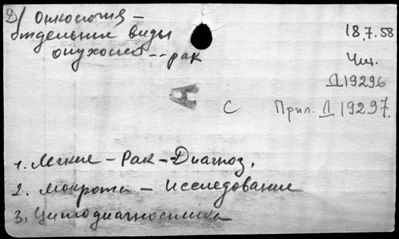 Д/ Онкология –
отдельные виды
опухолей -- рак
18.7.58
Чит.
Д19296
А
С
Прил. Д 19297.
1. Легкие – Рак – Диагноз.
2. Мокрота – исследование
3. Цитодиагностика